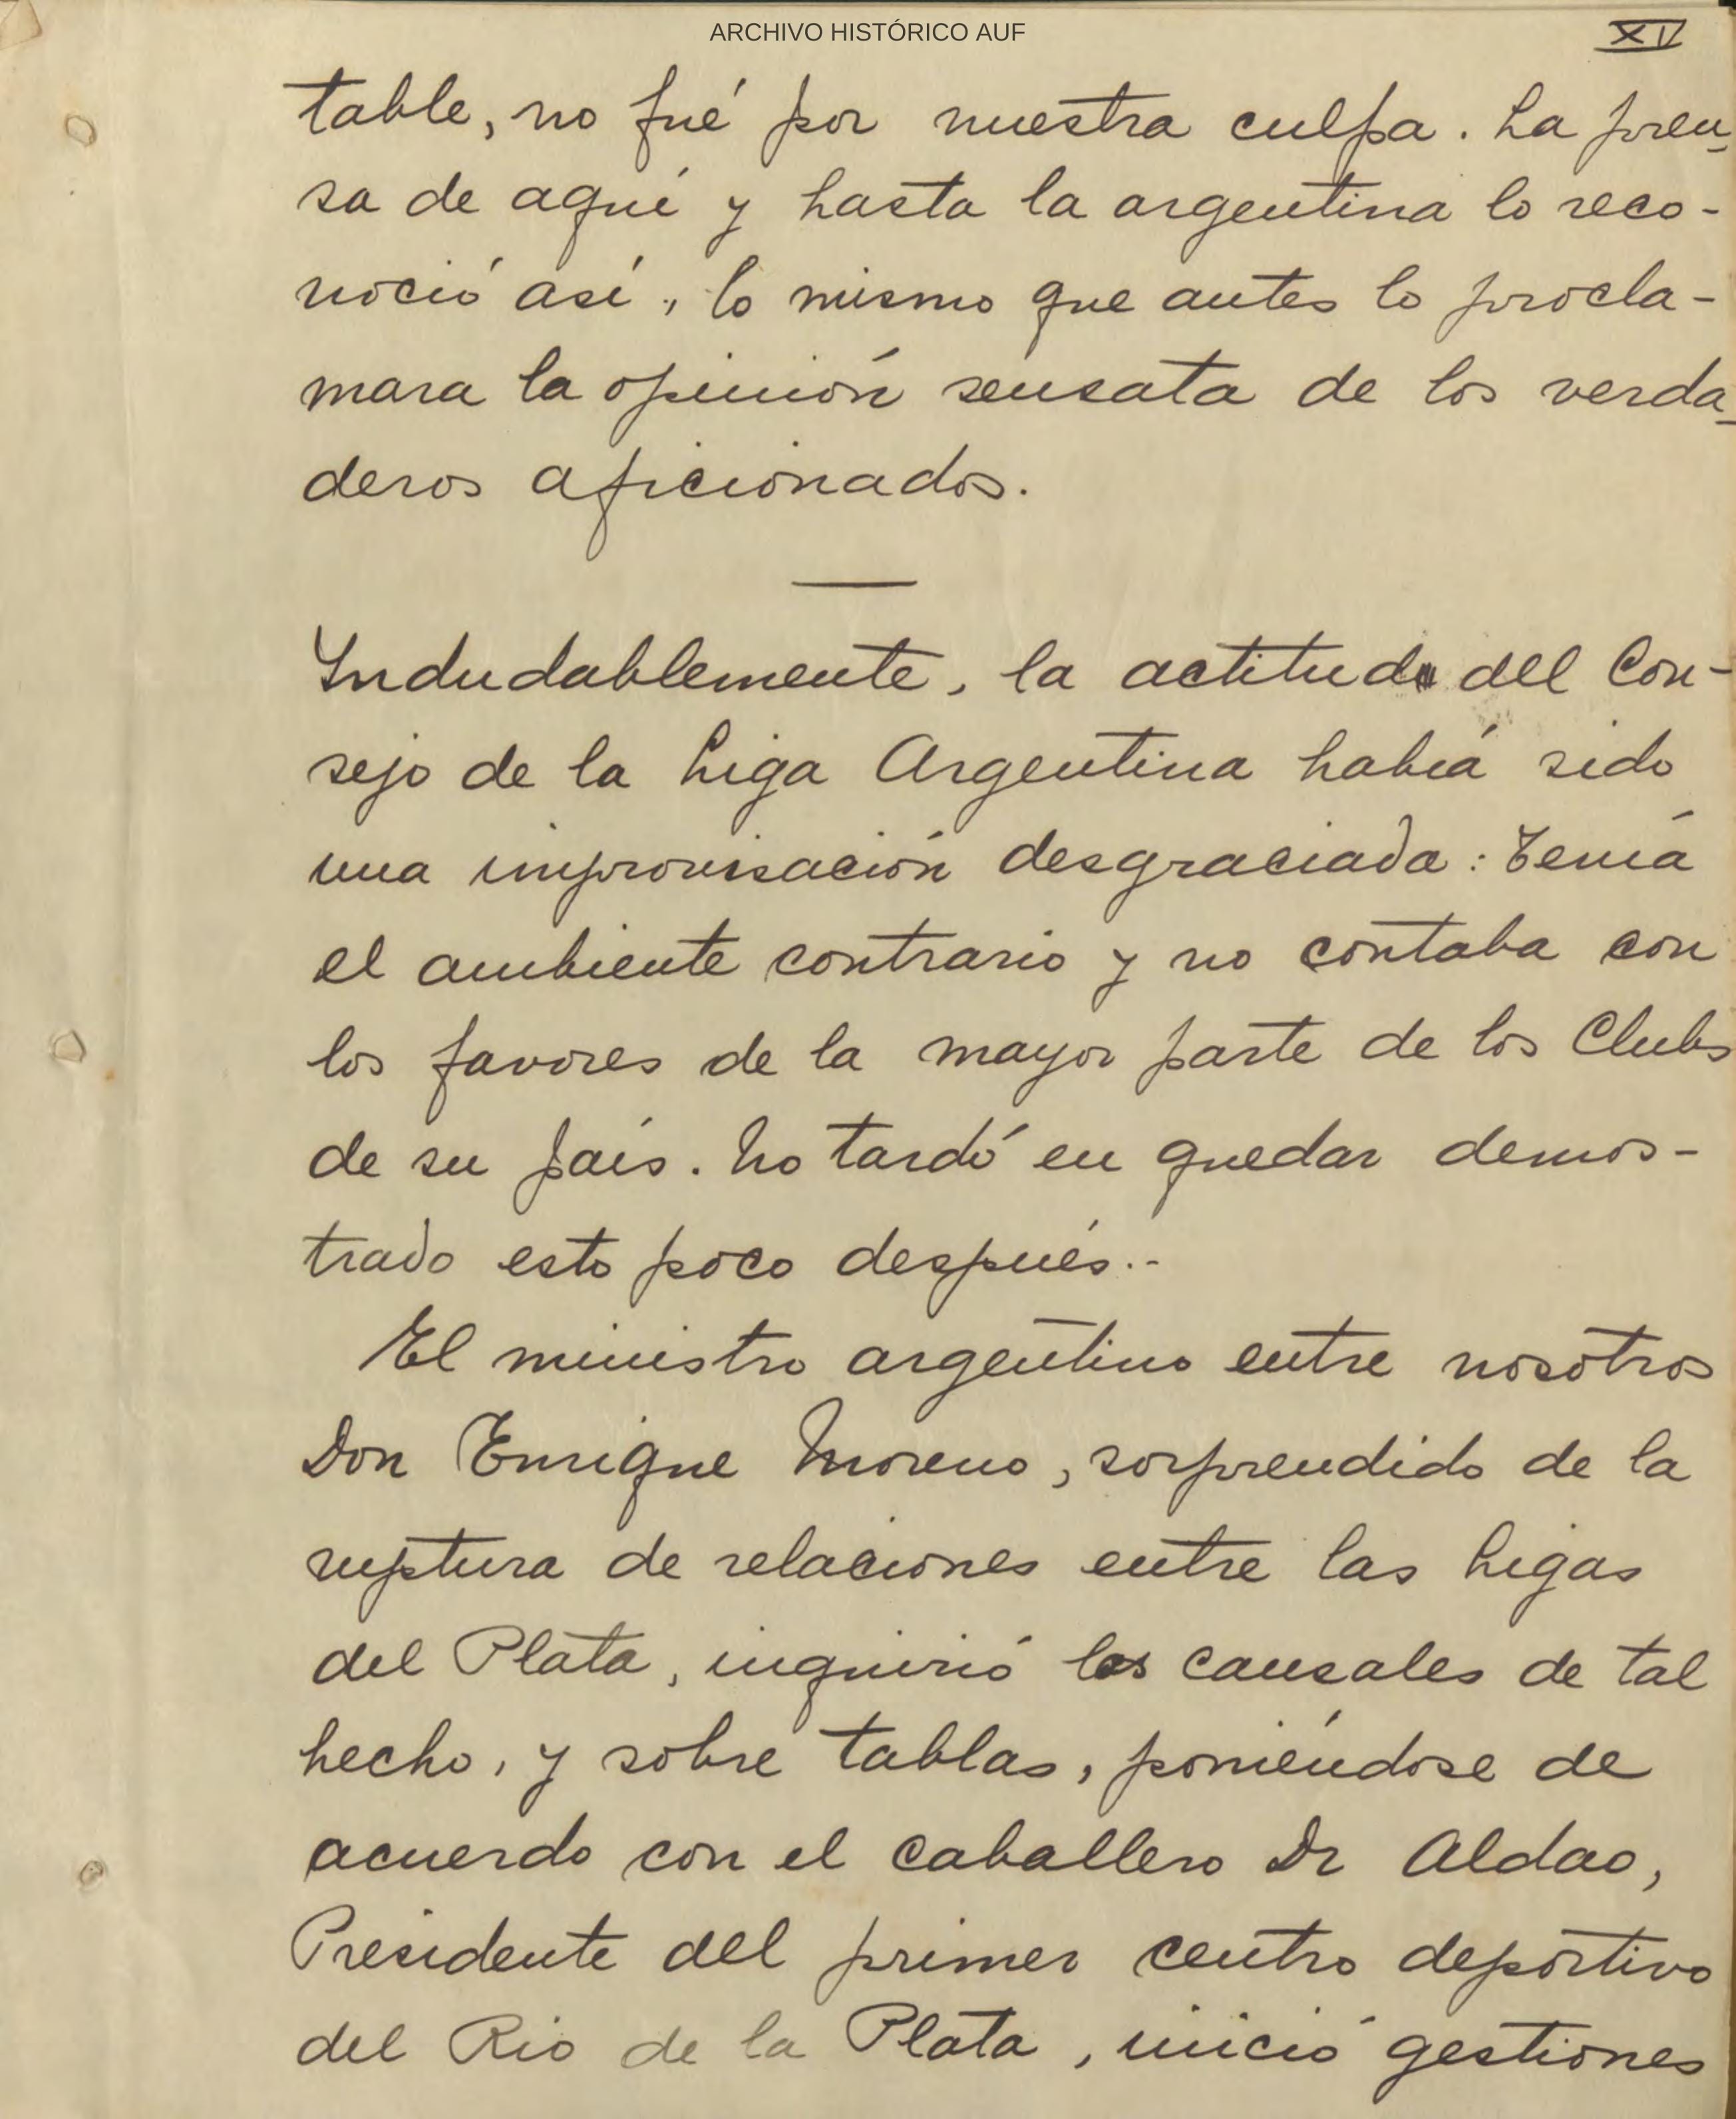 ARCHIVO HISTÓRICO AUF
XIV
table, no fué por nuestra culpa. La pren-
sa de aquí y hasta la argentina lo reco-
noció así, lo mismo que antes lo procla-
mara la opinión sensata de los verda-
deros aficionados.
Indudablemente, la actitud del Con-
sejo de la Liga Argentina había sido
una improvisación desgraciada: Tenía
el ambiente contrario y no contaba con
los favores de la mayor parte de los Clubs
de su país. No tardó en quedar demos-
trado esto poco después.-
El ministro argentino entre nosotros
Don Enrique Moreno, sorprendido de la
ruptura de relaciones entre las Ligas
del Plata, inquirió los causales de tal
hecho, y sobre tablas, poniéndose de
acuerdo con el caballero Dr Aldao,
Presidente del primer centro deportivo
del Rio de la Plata, inició gestiones